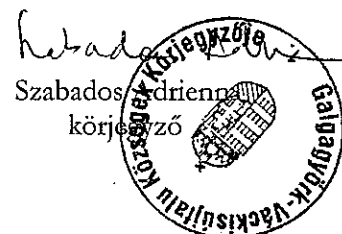 Szabados Adrienn
körjegyző
Galgagyörk-Váckisújfalu Községek Körjegyzője